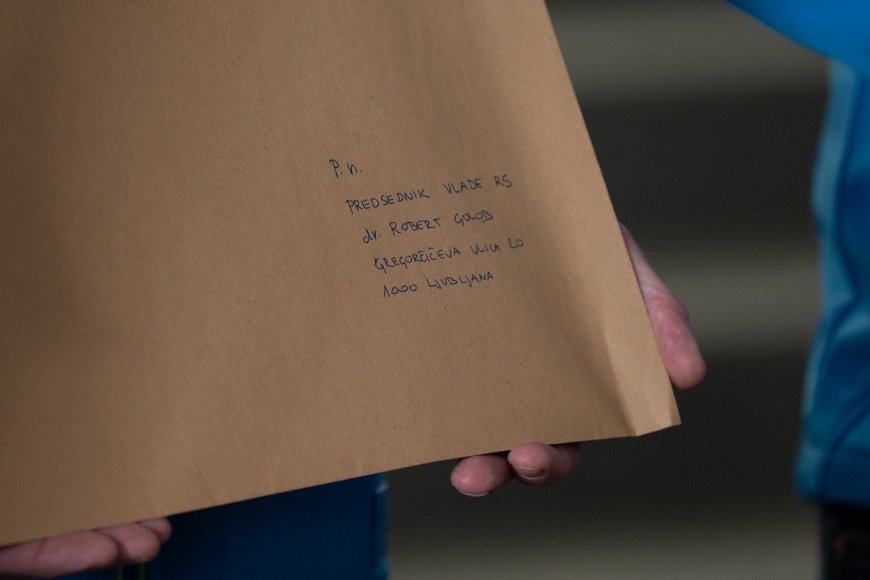 P.n.
PREDSEDNIK VLADE RS
dr. ROBERT GOLOB
GREGORČIČEVA ULICA 20
1000 LJUBLJANA